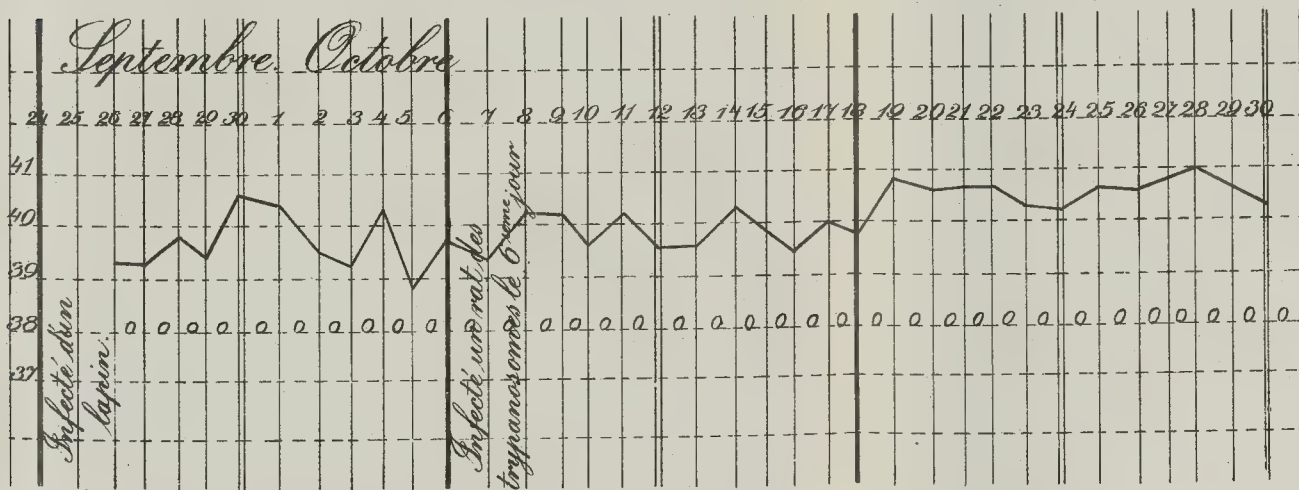 Septembre. Octobre
24 25 26 27 28 29 30 1 2 3 4 5 6 7 8 9 10 11 12 13 14 15 16 17 18 19 20 21 22 23 24 25 26 27 28 29 30
41
40
39
38 0 0 0 0 0 0 0 0 0 0 0 0 0 0 0 0 0 0 0 0 0 0 0 0 0 0 0 0 0 0 0 0 0 0 0
37
Infecté d'un
lapin.
Infecté un rat des
trypanosomes le 6eme jour